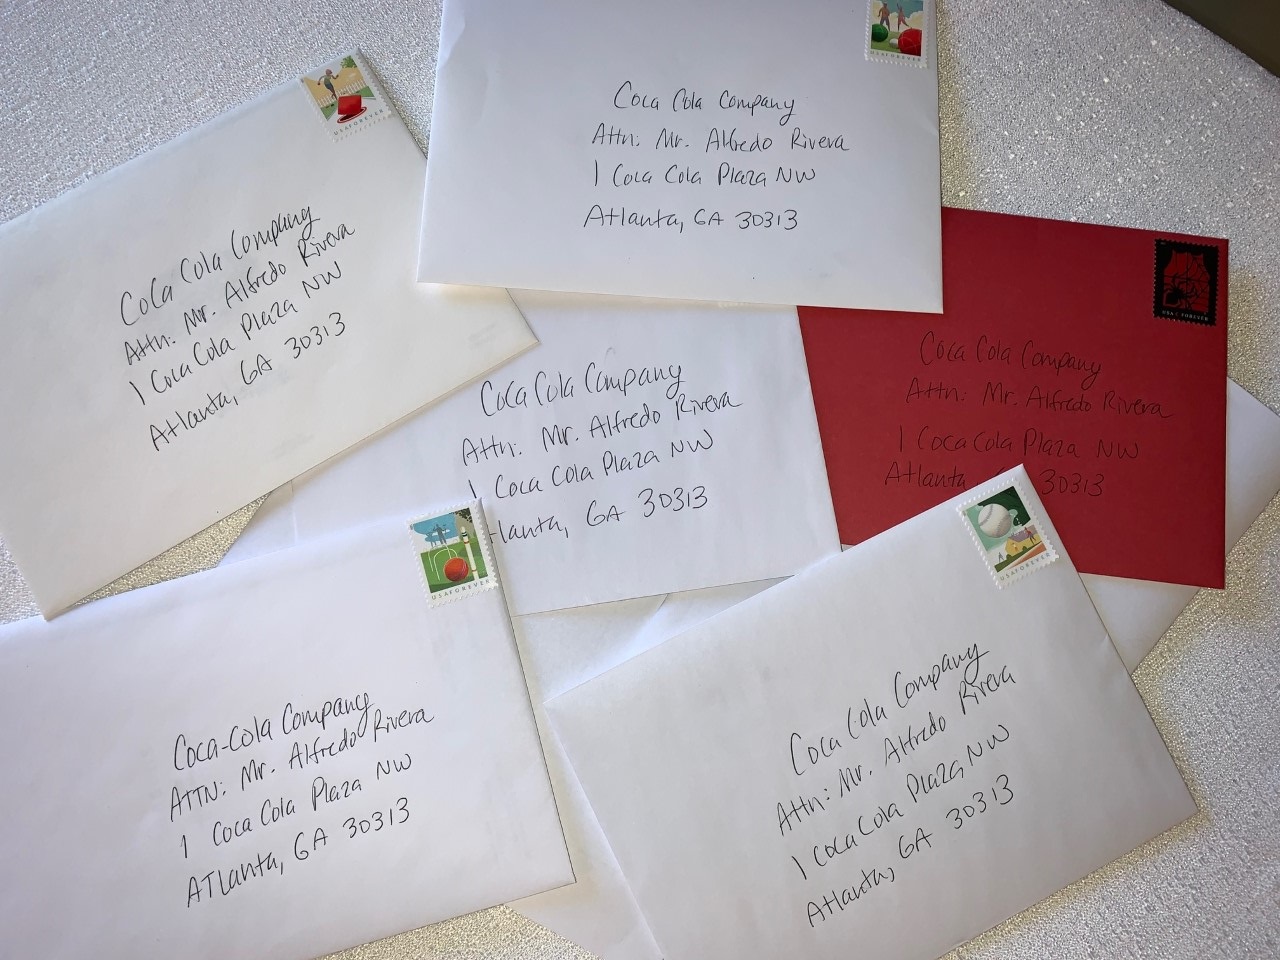 USA FOREVER
Coca Cola Company
Attn: Mr. Alfredo Rivera
1 Coca Cola Plaza NW
Atlanta, GA 30313
USA FOREVER
Coca Cola Company
Attn: Mr. Alfredo Rivera
1 Coca Cola Plaza NW
Atlanta, GA 30313
USA FOREVER
Coca Cola Company
Attn: Mr. Alfredo Rivera
1 Coca Cola Plaza NW
Atlanta 30313
Coca Cola Company
Attn: Mr. Alfredo Rivera
1 Coca Cola Plaza NW
lanta, GA 30313
USA FOREVER
Coca-Cola Company
ATTN: Mr. Alfredo Rivera
1 Coca Cola Plaza NW
ATlanta, GA 30313
USA FOREVER
Coca Cola Company
Attn: Mr. Alfredo Rivera
1 Coca Cola Plaza, NW
Atlanta, GA 30313
USA FOREVER